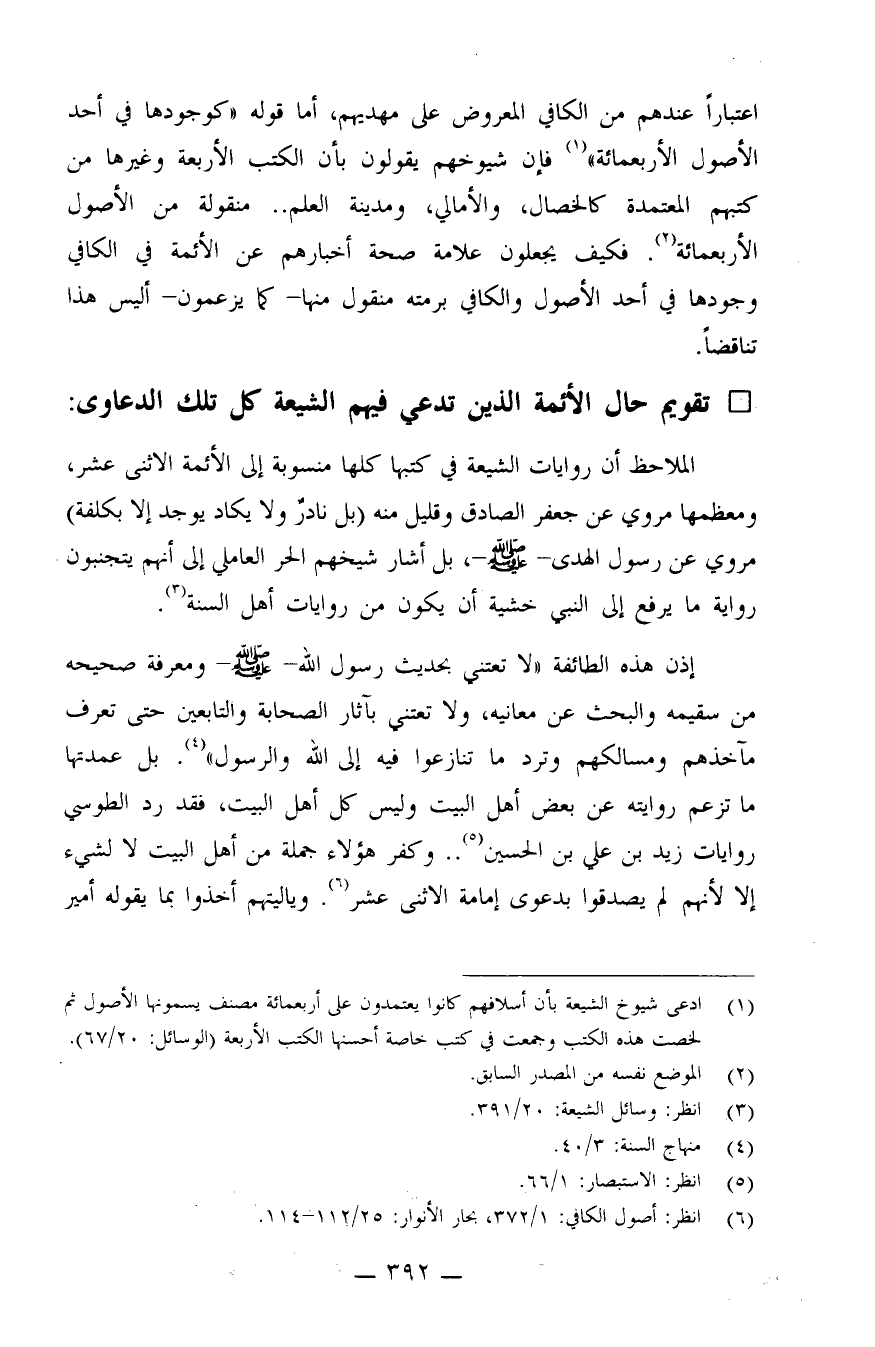 اعتباراً عندهم من الكافي المعروض على مهديهم، أما قوله «كوجودها في أحد
الأصول الأربعمائة»(١) فإن شيوخهم يقولون بأن الكتب الأربعة وغيرها من
كتبهم المعتمدة كالخصال، والأمالي، ومدينة العلم.. منقولة من الأصول
الأربعمائة(٢). فكيف يجعلون علامة صحة أخبارهم عن الأئمة في الكافي
وجودها في أحد الأصول والكافي برمته منقول منها– كما يزعمون– أليس هذا
تناقضاً.
□ تقويم حال الأئمة الذين تدعي فيهم الشيعة كل تلك الدعاوى:
الملاحظ أن روايات الشيعة في كتبها كلها منسوبة إلى الأئمة الاثنى عشر،
ومعظمها مروي عن جعفر الصادق وقليل منه (بل نادرٌ ولا يكاد يوجد إلا بكلفة)
مروي عن رسول الهدى– ﷺ–، بل أشار شيخهم الحر العاملي إلى أنهم يتجنبون
رواية ما يرفع إلى النبي خشية أن يكون من روايات أهل السنة(٣).
إذن هذه الطائفة «لا تعتني بحديث رسول الله– ﷺ– ومعرفة صحيحه
من سقيمه والبحث عن معانيه، ولا تعتني بآثار الصحابة والتابعين حتى تعرف
مآخذهم ومسالكهم وترد ما تنازعوا فيه إلى الله والرسول»(٤). بل عمدتها
ما تزعم روايته عن بعض أهل البيت وليس كل أهل البيت، فقد رد الطوسي
روايات زيد بن علي بن الحسين(٥).. وكفر هؤلاء جملة من أهل البيت لا لشيء
إلا لأنهم لم يصدقوا بدعوى إمامة الاثنى عشر(٦). وياليتهم أخذوا بما يقوله أمير
(١) ادعى شيوخ الشيعة بأن أسلافهم كانوا يعتمدون على أربعمائة مصنف يسمونها الأصول ثم
لخصت هذه الكتب وجمعت في كتب خاصة أحسنها الكتب الأربعة (الوسائل: ٦٧/٢٠).
(٢) الموضع نفسه من المصدر السابق.
(٣) انظر: وسائل الشيعة: ٣٩١/٢٠.
(٤) منهاج السنة: ٤٠/٣.
(٥) انظر: الاستبصار: ٦٦/١.
(٦) انظر: أصول الكافي: ٣٧٢/١، بحار الأنوار: ١١٢/٢٥–١١٤.
— ٣٩٢ —